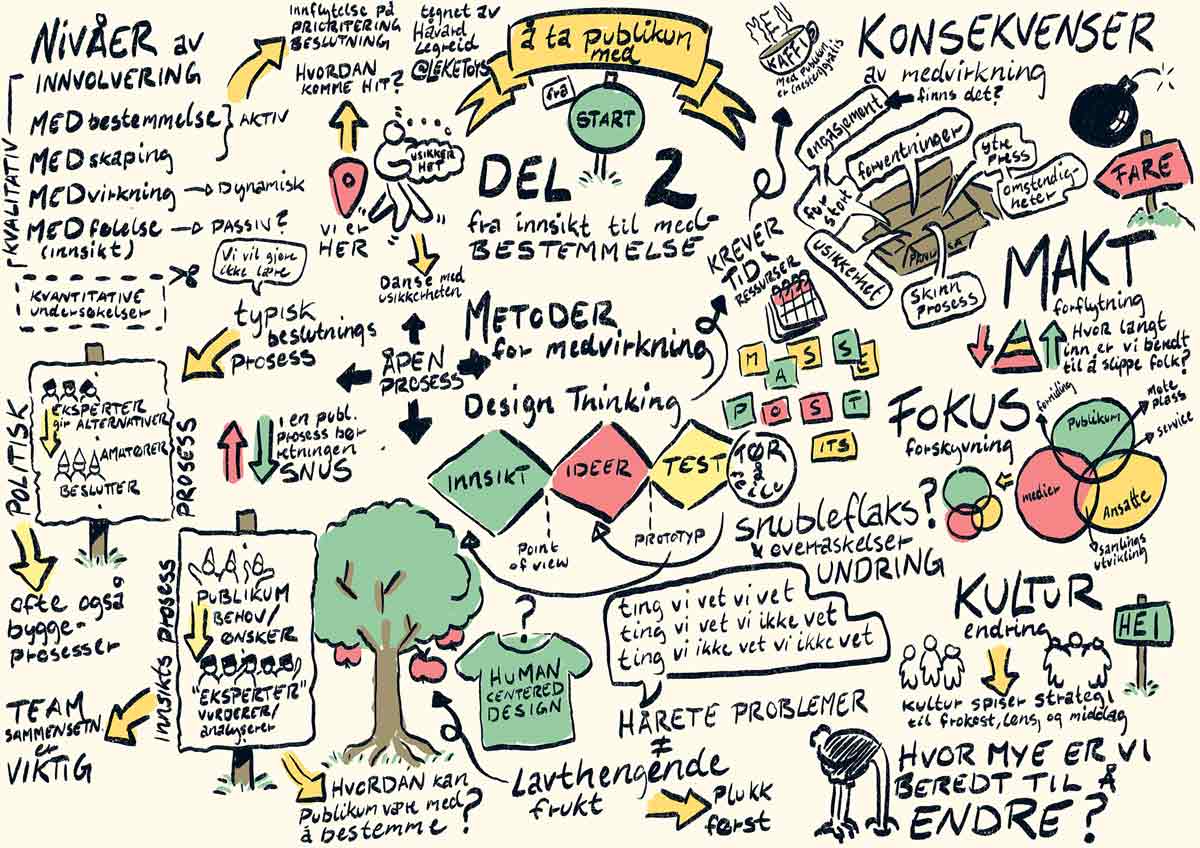 NIVÅER av
INNVOLVERING
KVALITATIV
MEDbestemmelse
MEDskaping
AKTIV
MEDvirkning → Dynamisk
MEDfølelse → PASSIV?
(innsikt)
KVANTITATIVE
undersøkelser
innflytelse på
PRIORITERING
BESLUTNING
HVORDAN
KOMME HIT?
vi er
HER
tegnet av
Håvard
Legreid
@LEKETOYS
USIKKER
HET
Danse med
usikkerheten
å ta publikum
med
fra
START
DEL 2
fra innsikt til med-
BESTEMMELSE
MEN
KAFFE
KONSEKVENSER
av medvirkning
finns det?
engasjement
forventninger
ytre
press
omstendig-
heter
for
stort
usikkerhet
SKINN
PROSESS
FARE
KREVER
TID &
RESSURSER
MAKT
forflytning
Hvor langt
inn er vi beredt
til å slippe folk?
Vi vil gjøre
ikke lære
typisk
beslutnings
prosess
POLITISK
PROSESS
EKSPERTER
gir ALTERNATIVER
AMATØRER
BESLUTTER
ofte også
bygge-
prosesser
i en publ.
prosess bør
retningen
SNUS
ÅPEN
PROSESS
METODER
for medvirkning
Design Thinking
INNSIKT
IDEER
TEST
TØR
å
feile
Point
of view
PROTOTYP
MASSE
POST
ITS
FOKUS
forskyvning
formidling
møte
plass
service
Publikum
medier
Ansatte
samlings
utvikling
snubleflaks?
& overraskelser
UNDRING
ting vi vet vi vet
ting vi vet vi ikke vet
ting vi ikke vet vi ikke vet
HÅRETE PROBLEMER
≠
Lavthengende
frukt
Plukk
først
HUMAN
CENTERED
DESIGN
?
Innsikts prosess
PUBLIKUM
BEHOV/
ØNSKER
"EKSPERTER"
VURDERER/
analyserer
TEAM
SAMMENSETN.
er
VIKTIG
HVORDAN kan
Publikum være med
å bestemme?
KULTUR
endring
HEI
Kultur spiser strategi
til frokost, lunsj og middag
HVOR MYE ER VI
BEREDT TIL Å
ENDRE?